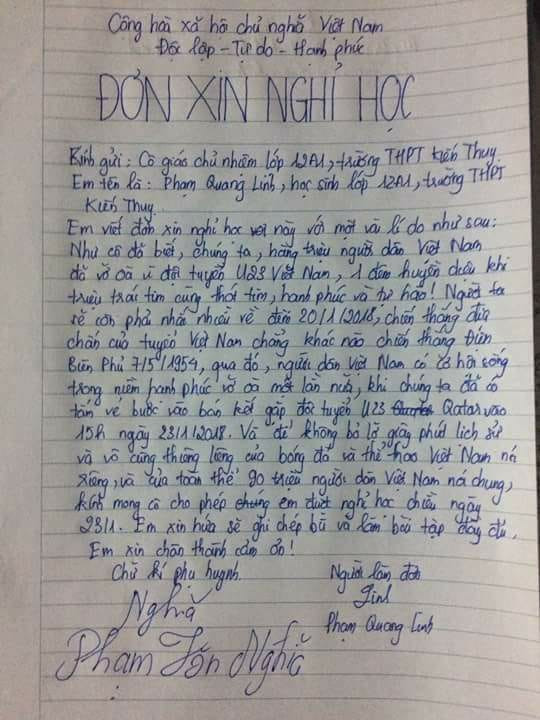 Cộng hoà xã hội chủ nghĩa Việt Nam
Độc lập - Tự do - Hạnh phúc
ĐƠN XIN NGHỈ HỌC
Kính gửi: Cô giáo chủ nhiệm lớp 12A1, trường THPT Kiến Thụy
Em tên là: Phạm Quang Linh, học sinh lớp 12A1, trường THPT
Kiến Thụy.
Em viết đơn xin nghỉ học này với một vài lí do như sau:
Như cô đã biết, chúng ta, hàng triệu người dân Việt Nam
đã vỡ oà vì đội tuyển U23 Việt Nam, 1 đêm huyền diệu khi
triệu trái tim cùng thót tim, hạnh phúc và tự hào! Người ta
sẽ còn phải nhắc nhiều về đêm 20/1/2018, chiến thắng địa
chấn của tuyển Việt Nam chẳng khác nào chiến thắng Điện
Biên Phủ 7/5/1954, qua đó, người dân Việt Nam có cơ hội sống
trong niềm hạnh phúc vỡ oà một lần nữa, khi chúng ta đã có
tấm vé bước vào bán kết gặp đội tuyển U23 Qatar vào
15h ngày 23/1/2018. Và để không bỏ lỡ giây phút lịch sử
và vô cùng thiêng liêng của bóng đá và thể thao Việt Nam nói
riêng, và của toàn thể 90 triệu người dân Việt Nam nói chung,
kính mong cô cho phép chúng em được nghỉ học chiều ngày
23/1. Em xin hứa sẽ ghi chép bù và làm bài tập đầy đủ.
Em xin chân thành cảm ơn!
Chữ kí phụ huynh. Người làm đơn
Nghĩa Linh
Phạm Tấn Nghĩa Phạm Quang Linh